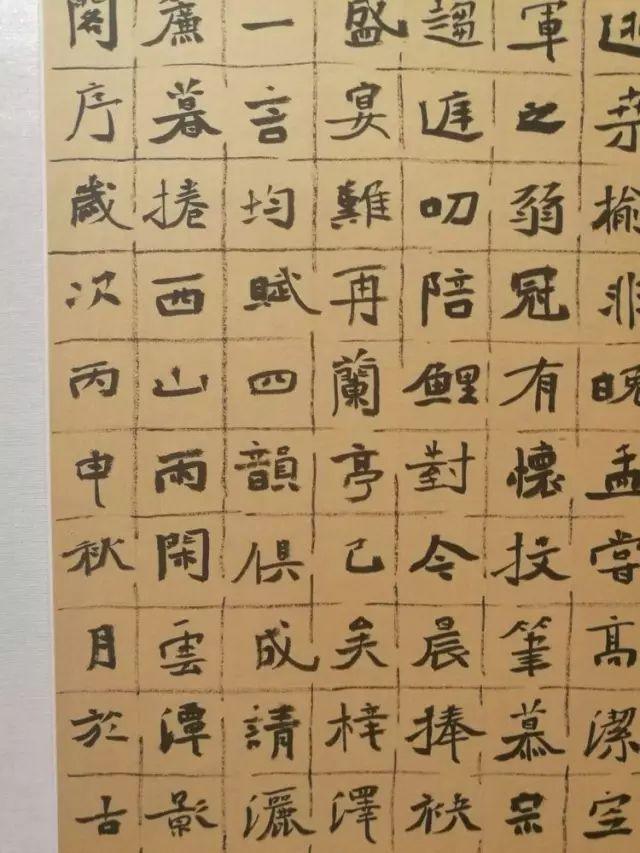 逝桑榆非晚孟嘗高潔空
軍之弱冠有懷投筆慕宗
趨庭叨陪鯉對今晨捧袂
盛宴難再蘭亭已矣梓澤
一言均賦四韻俱成請灑
簾暮捲西山雨閑雲潭影
閣序歲次丙申秋月於古